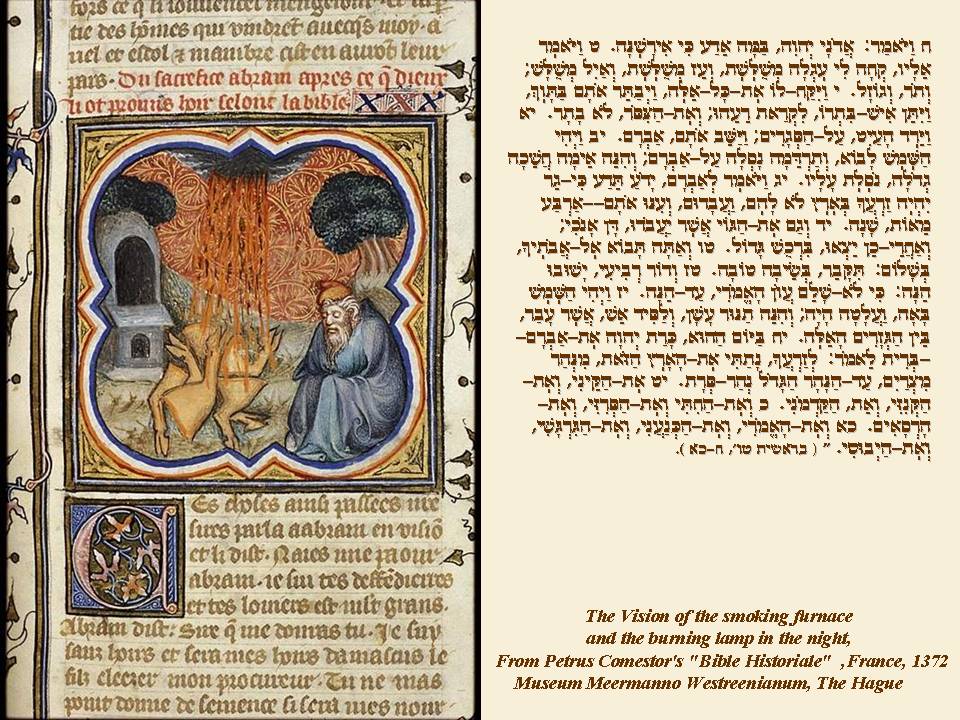 fors ce q̃ il jouuentel mengerent et la ptie des hõmes qui vindrent auecq̃s moy. a
nel et escol et mambre
pars. Du sacrefice abram apres ce q̃ dieux
li ot promis hoir selont la bible XXX
Ces choses ainsi passees nre
sires parla a abram en visiõ
et li dist. Naies mie paour
abram. ie sui tes deffẽdierres
et tes loiuiers est mlt grans.
Abram dist. Sire q̃ me donras tu. Je suy
sans hoirs et sera mes hoirs damascus le
filz eleezer mon procureur. Tu ne mas
point donne de semence si sera mes nour
ח וַיֹּאמַר: אֲדֹנָי יְהוִה, בַּמָּה אֵדַע כִּי אִירָשֶׁנָּה. ט וַיֹּאמֶר
אֵלָיו, קְחָה לִי עֶגְלָה מְשֻׁלֶּשֶׁת, וְעֵז מְשֻׁלֶּשֶׁת, וְאַיִל מְשֻׁלָּשׁ;
וְתֹר, וְגוֹזָל. י וַיִּקַּח-לוֹ אֶת-כָּל-אֵלֶּה, וַיְבַתֵּר אֹתָם בַּתָּוֶךְ,
וַיִּתֵּן אִישׁ-בִּתְרוֹ, לִקְרַאת רֵעֵהוּ; וְאֶת-הַצִּפֹּר, לֹא בָתָר. יא
וַיֵּרֶד הָעַיִט, עַל-הַפְּגָרִים; וַיַּשֵּׁב אֹתָם, אַבְרָם. יב וַיְהִי
הַשֶּׁמֶשׁ לָבוֹא, וְתַרְדֵּמָה נָפְלָה עַל-אַבְרָם; וְהִנֵּה אֵימָה חֲשֵׁכָה
גְדֹלָה, נֹפֶלֶת עָלָיו. יג וַיֹּאמֶר לְאַבְרָם, יָדֹעַ תֵּדַע כִּי-גֵר
יִהְיֶה זַרְעֲךָ בְּאֶרֶץ לֹא לָהֶם, וַעֲבָדוּם, וְעִנּוּ אֹתָם--אַרְבַּע
מֵאוֹת, שָׁנָה. יד וְגַם אֶת-הַגּוֹי אֲשֶׁר יַעֲבֹדוּ, דָּן אָנֹכִי;
וְאַחֲרֵי-כֵן יֵצְאוּ, בִּרְכֻשׁ גָּדוֹל. טו וְאַתָּה תָּבוֹא אֶל-אֲבֹתֶיךָ,
בְּשָׁלוֹם: תִּקָּבֵר, בְּשֵׂיבָה טוֹבָה. טז וְדוֹר רְבִיעִי, יָשׁוּבוּ
הֵנָּה: כִּי לֹא-שָׁלֵם עֲוֹן הָאֱמֹרִי, עַד-הֵנָּה. יז וַיְהִי הַשֶּׁמֶשׁ
בָּאָה, וַעֲלָטָה הָיָה; וְהִנֵּה תַנּוּר עָשָׁן, וְלַפִּיד אֵשׁ, אֲשֶׁר עָבַר,
בֵּין הַגְּזָרִים הָאֵלֶּה. יח בַּיּוֹם הַהוּא, כָּרַת יְהוָה אֶת-אַבְרָם-
-בְּרִית לֵאמֹר: לְזַרְעֲךָ, נָתַתִּי אֶת-הָאָרֶץ הַזֹּאת, מִנְּהַר
מִצְרַיִם, עַד-הַנָּהָר הַגָּדֹל נְהַר-פְּרָת. יט אֶת-הַקֵּינִי, וְאֶת-
הַקְּנִזִּי, וְאֵת, הַקַּדְמֹנִי. כ וְאֶת-הַחִתִּי וְאֶת-הַפְּרִזִּי, וְאֶת-
הָרְפָאִים. כא וְאֶת-הָאֱמֹרִי, וְאֶת-הַכְּנַעֲנִי, וְאֶת-הַגִּרְגָּשִׁי,
וְאֶת-הַיְבוּסִי. " ( בראשית טו', ח-כא ).
The Vision of the smoking furnace
and the burning lamp in the night,
From Petrus Comestor's "Bible Historiale" ,France, 1372
Museum Meermanno Westreenianum, The Hague